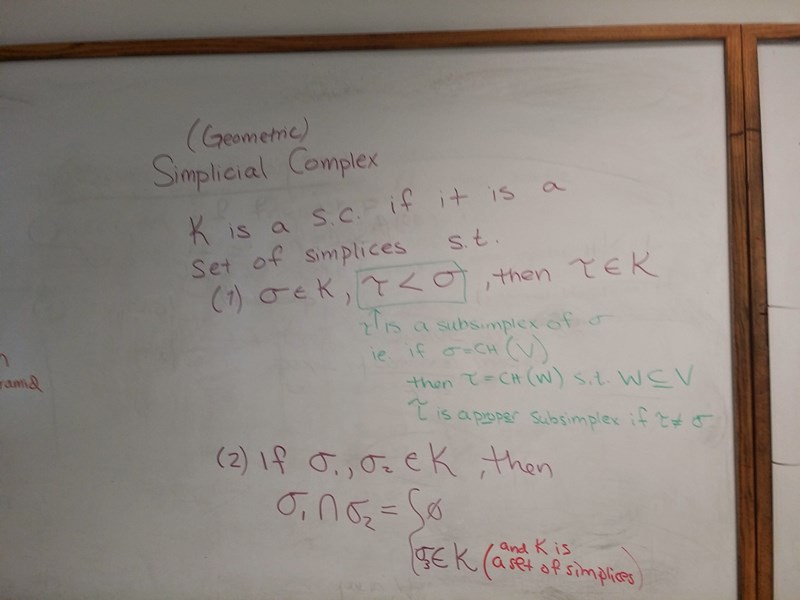 (Geometric)
Simplicial Complex
K is a s.c. if it is a
set of simplices s.t.
(1) σ ∈ K, τ < σ, then τ ∈ K
τ is a subsimplex of σ
ie. if σ = CH(V)
then τ = CH(W) s.t. W ⊆ V
τ is a proper subsimplex if τ ≠ σ
(2) If σ₁, σ₂ ∈ K, then
σ₁ ∩ σ₂ = { ∅
σ₃ ∈ K (and K is
a set of simplices)